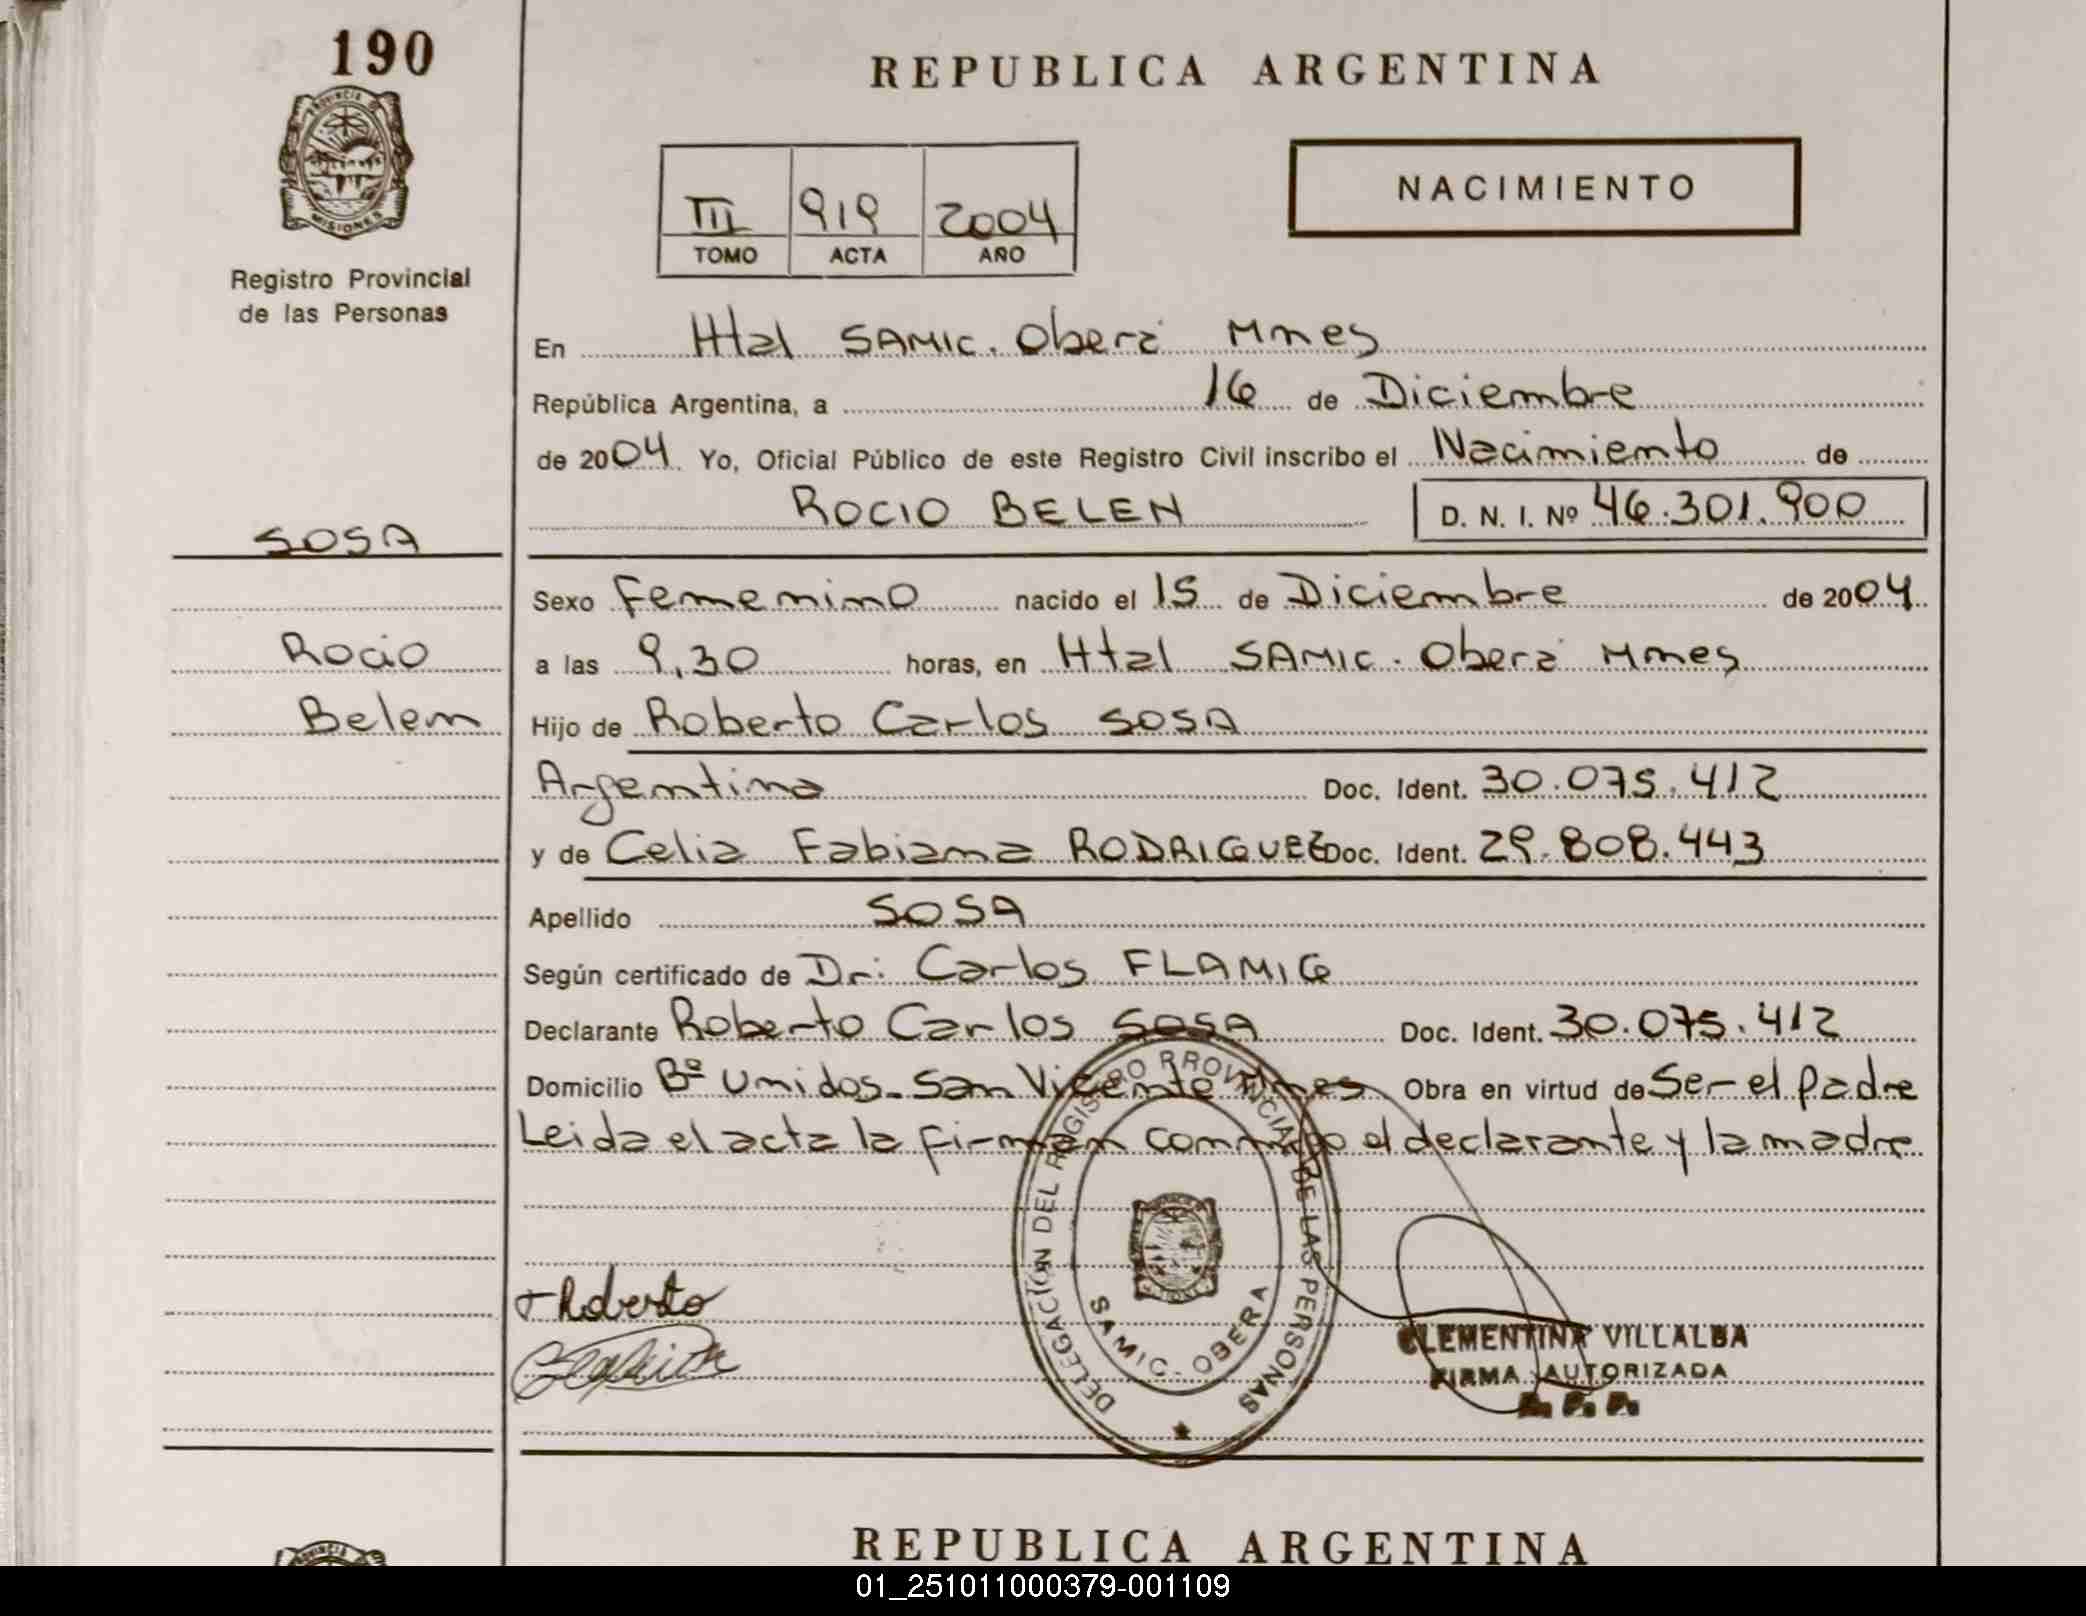 190
PROVINCIA DE
MISIONES
Registro Provincial
de las Personas
REPUBLICA ARGENTINA
NACIMIENTO
III 919 2004
TOMO ACTA AÑO
En Htal SAMIC. Oberá Mnes
República Argentina, a 16 de Diciembre
de 2004. Yo, Oficial Público de este Registro Civil inscribo el Nacimiento de
ROCIO BELEN D. N. I. Nº 46.301.900
SOSA
Sexo Femenino nacido el 15 de Diciembre de 2004.
Rocio
a las 9,30 horas, en Htal SAMIC. Oberá Mnes
Belen
Hijo de Roberto Carlos SOSA
Argentina Doc. Ident. 30.075.412
y de Celia Fabiana RODRIGUEZ Doc. Ident. 29.808.443
Apellido SOSA
Según certificado de Dr: Carlos FLAMIG
Declarante Roberto Carlos SOSA Doc. Ident. 30.075.412
Domicilio Bº Unidos - San Vicente Mnes Obra en virtud de Ser el padre
Leida el acta la firman conmigo el declarante y la madre
DELEGACIÓN DEL REGISTRO PROVINCIAL DE LAS PERSONAS
SAMIC. - OBERA
Roberto
CLEMENTINA VILLALBA
FIRMA AUTORIZADA
REPUBLICA ARGENTINA
PROVINCIA
01_251011000379-001109